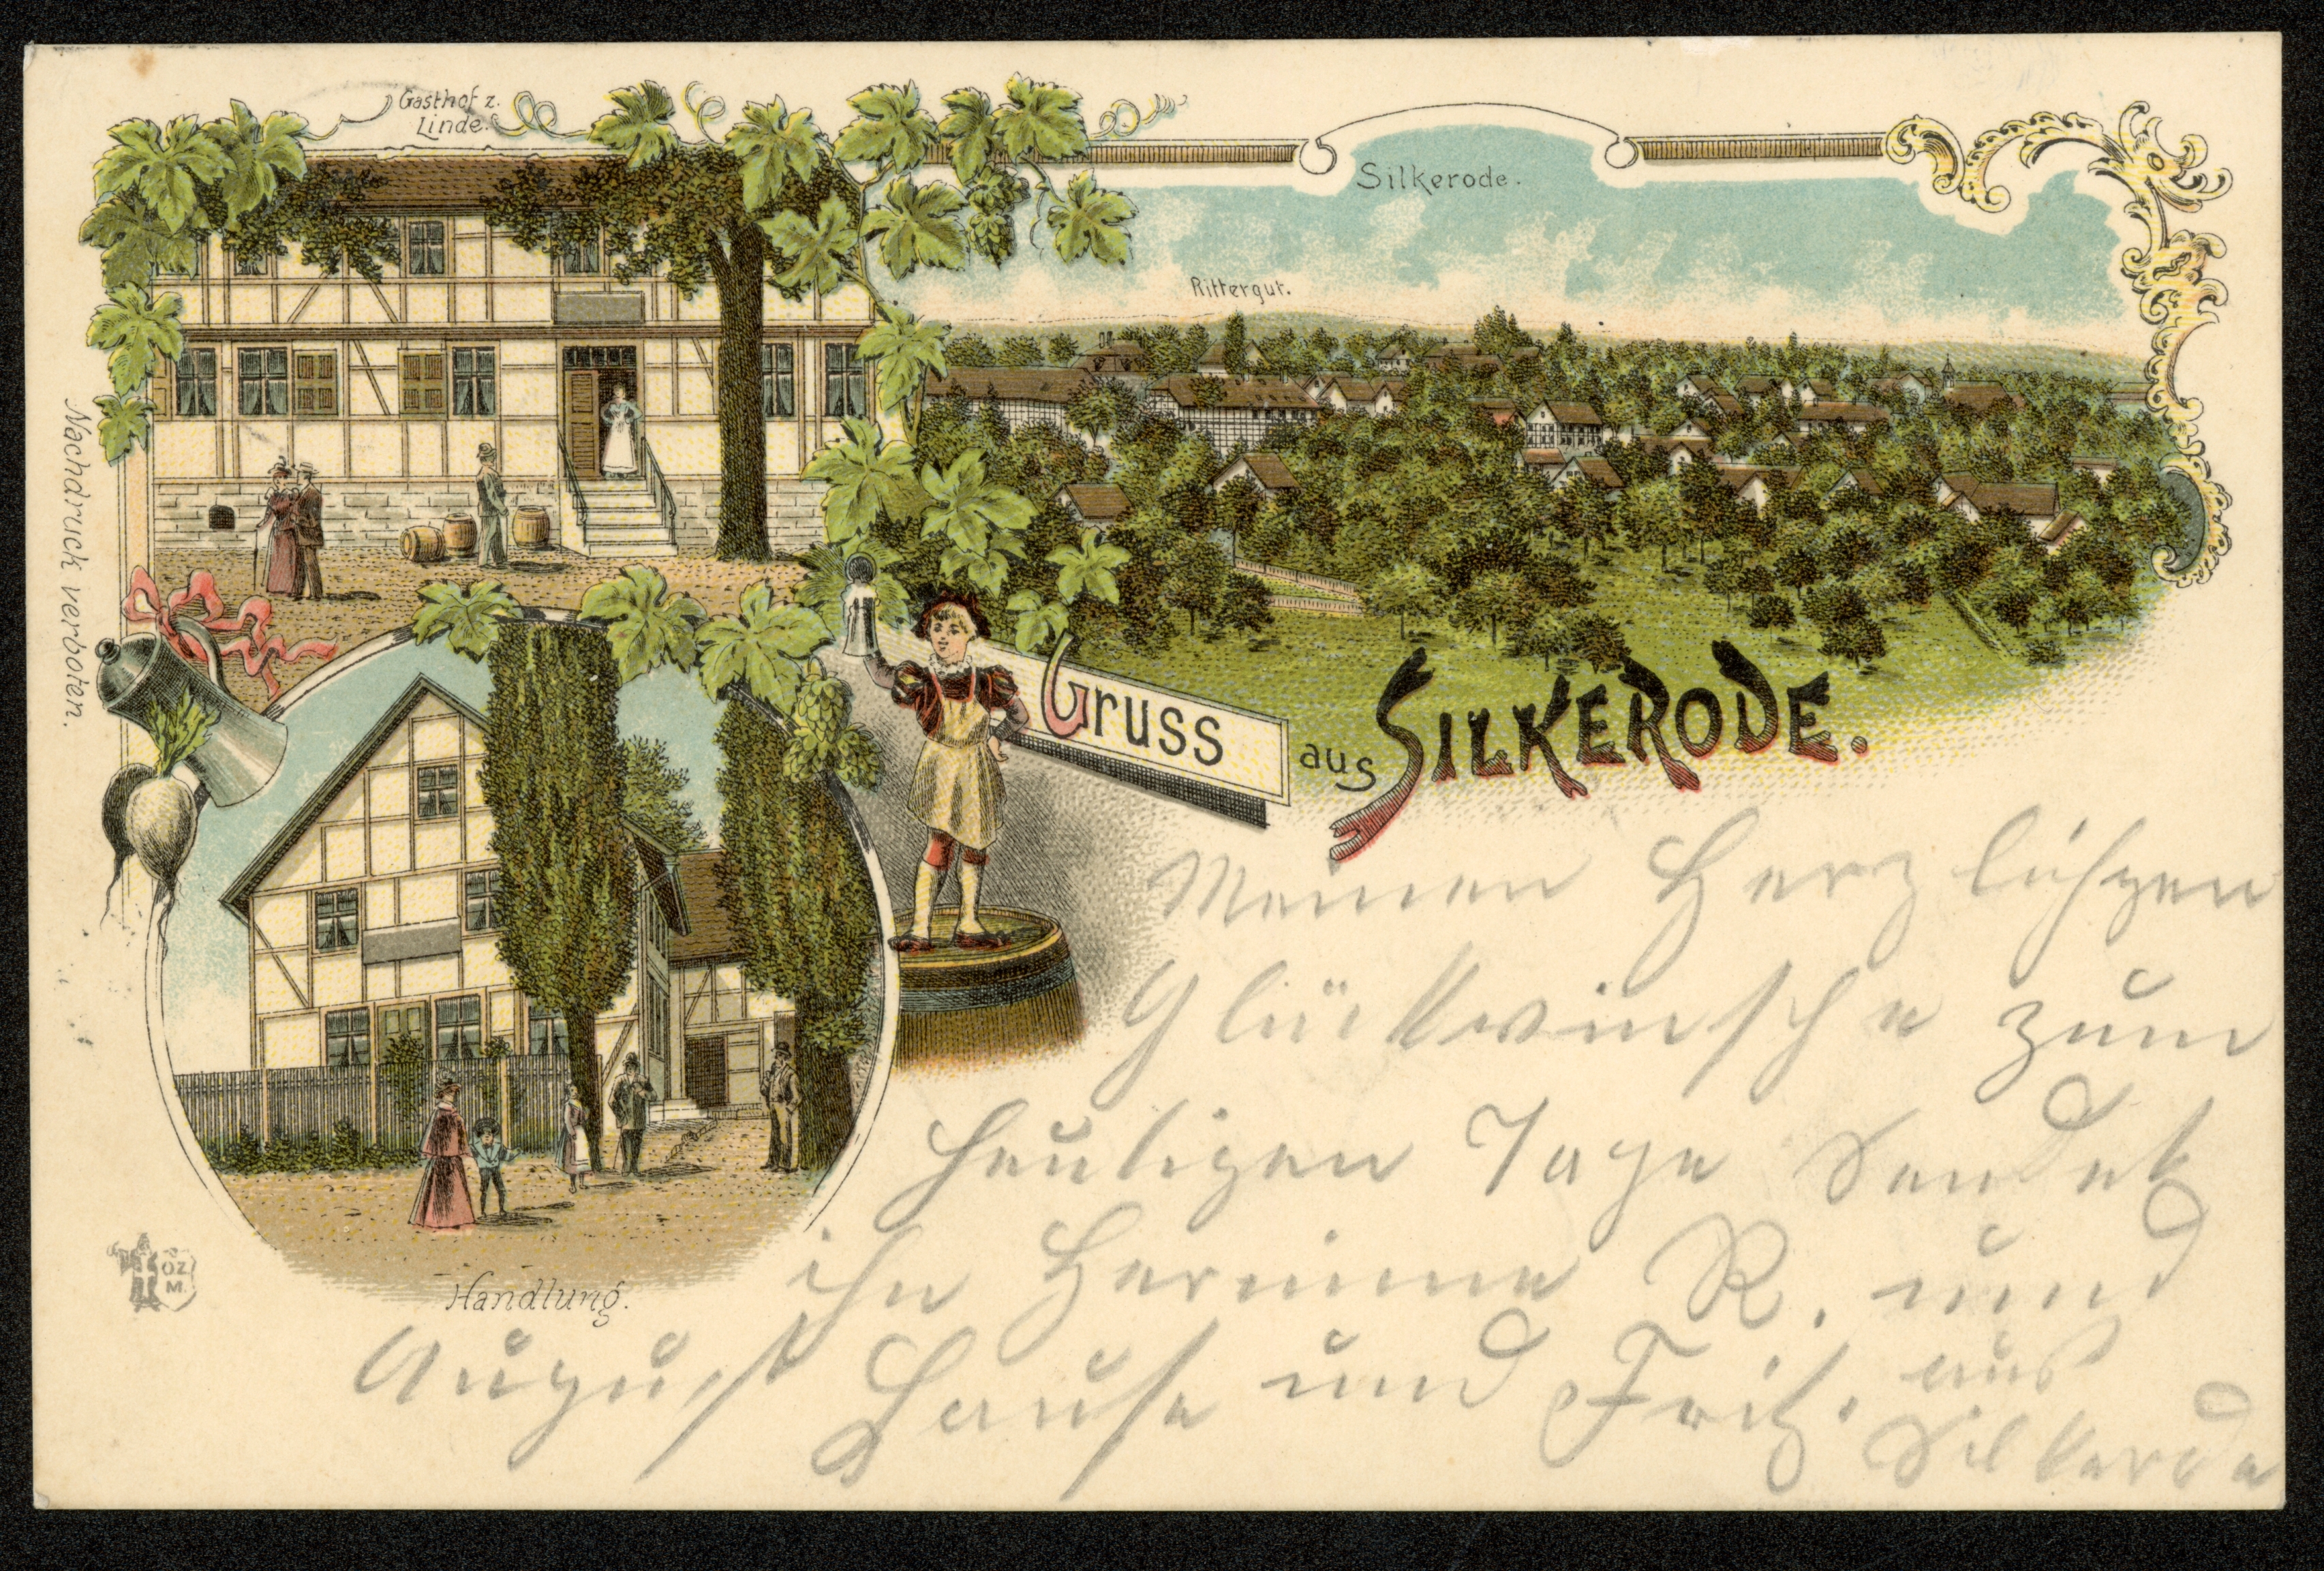 Gasthof z.
Linde.
Silkerode.
Rittergut.
Nachdruck verboten.
Gruss
aus SILKERODE.
Handlung.
OZ
M.
Meinen Herzlichen
Glückwünsche zum
heutigen Tage sendet
ihn Hermine R. und
August Hause und Fritz. aus
Silkerode